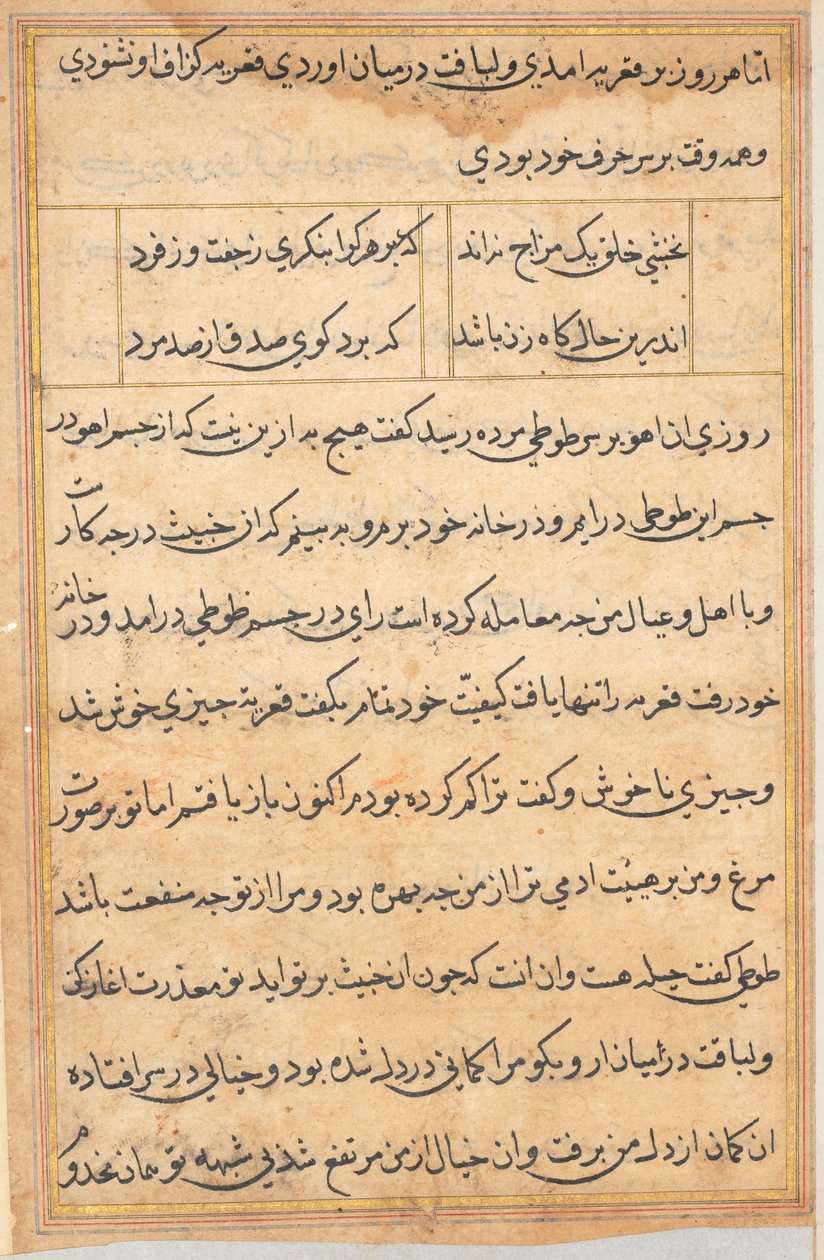 اما هر روز بر قمریه امدی و لباقت درمیان اوردی قمریه کزاف او نشنودی
و همه وقت برسر حرف خود بودی
نخشبی خلق یک مزاج نه‌اند
که عبر هر کرا بنکری ز جفت و ز فرد
اندرین حال کاه زن باشد
که برد کوی صدق از صد مرد
روزی ان اهو بر سر طوطی مرده رسید کفت هیج به ازین نیست که از جسم اهو در
جسم این طوطی درایم و در خانه خود بروم و به بینم که ان خبیث در جه کارست
و با اهل و عیال من جه معامله کرده است رای در جسم طوطی درامد و در خانه
خود رفت قمریه را تنها یافت کیفیّت خود تمام بکفت قمریه جیزی خوش شد
و جیزی ناخوش و کفت ترا کم کرده بودم اکنون باز یافتم اما تو بر صورت
مرغ و من بر هیئت ادمی ترا از من جه بهره بود و مرا از تو جه منفعت باشد
طوطی کفت حیله هست و ان انست که جون ان خبیث بر تو اید تو معذرت اغاز کن
و لباقت درمیان ار و بکو مرا کمانی در دل شده بود و خیالی در سر افتاده
ان کمان از دل من برفت و ان خیال از من مرتفع شد بی شبهه تو همان مخدوم